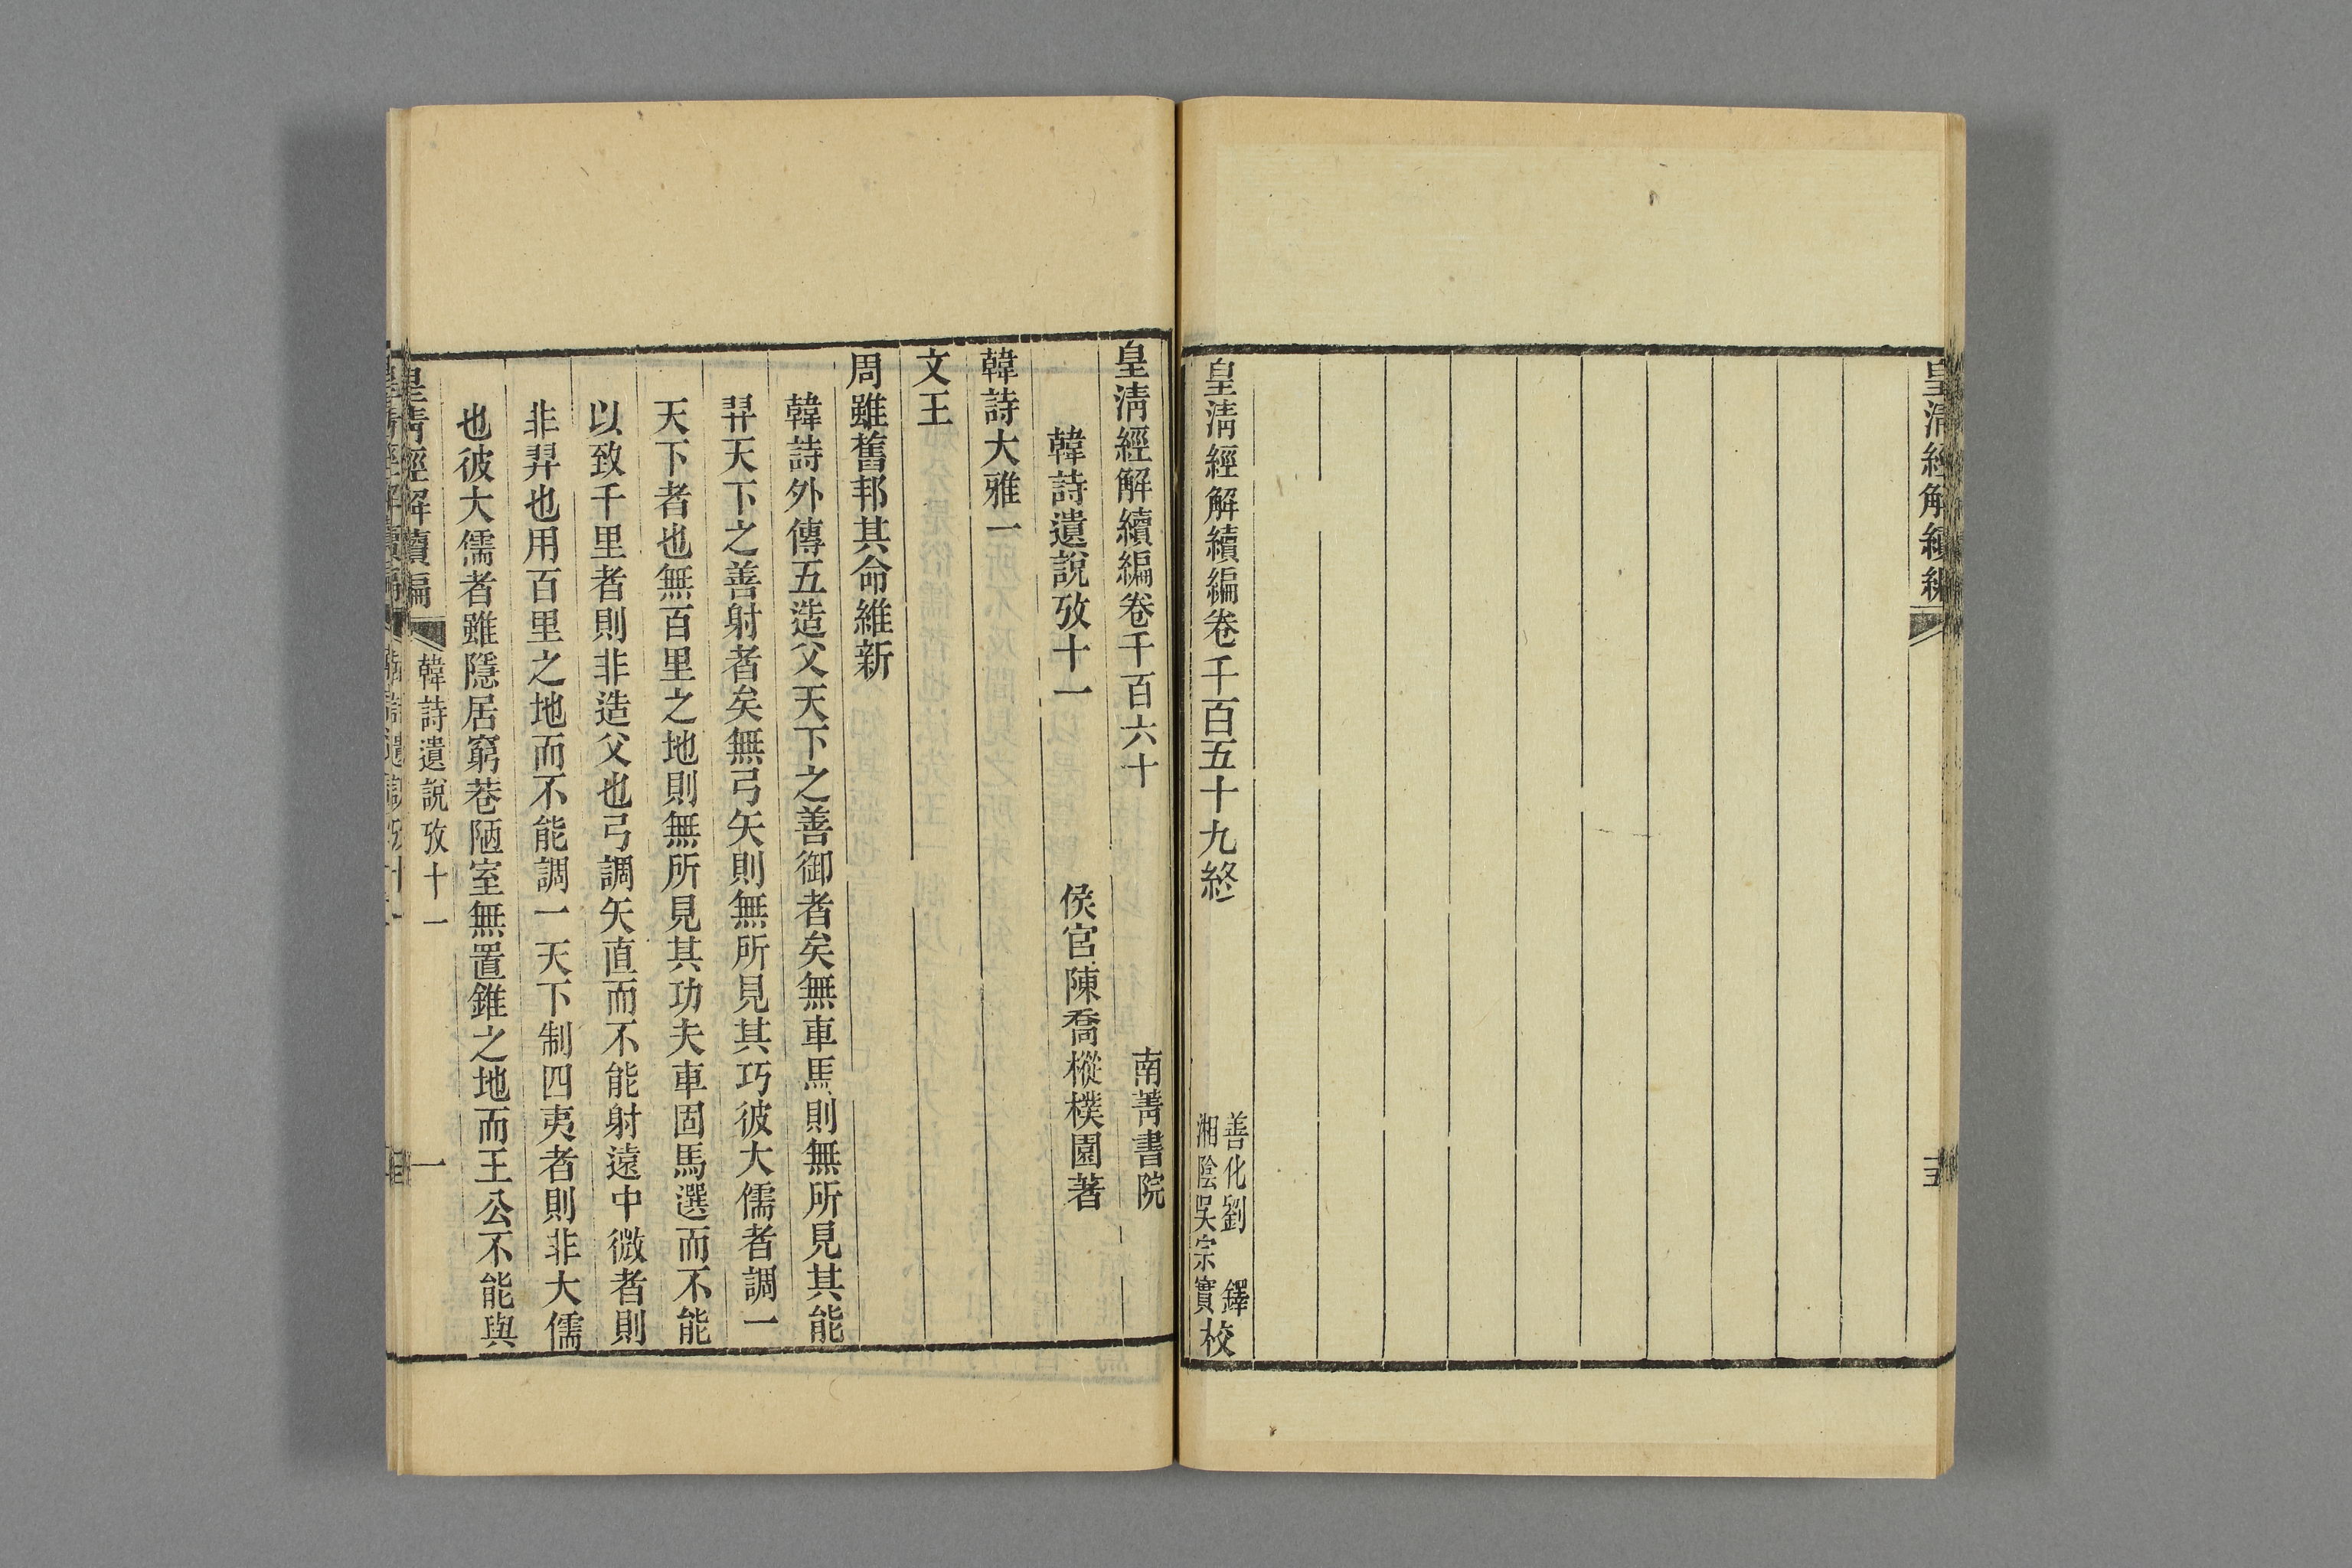 皇清經解續編
皇清經解續編卷千百五十九終
善化劉 鐸
湘陰吳宗實校
皇清經解續編卷千百六十
南菁書院
韓詩遺說攷十一
侯官陳喬樅樸園著
韓詩大雅一
文王
周雖舊邦其命維新
韓詩外傳五造父天下之善御者矣無車馬則無所見其能
羿天下之善射者矣無弓矢則無所見其巧彼大儒者調一
天下者也無百里之地則無所見其功夫車固馬選而不能
以致千里者則非造父也弓調矢直而不能射遠中微者則
非羿也用百里之地而不能調一天下制四夷者則非大儒
也彼大儒者雖隱居窮巷陋室無置錐之地而王公不能與
皇清經解續編
韓詩遺說攷十一
一